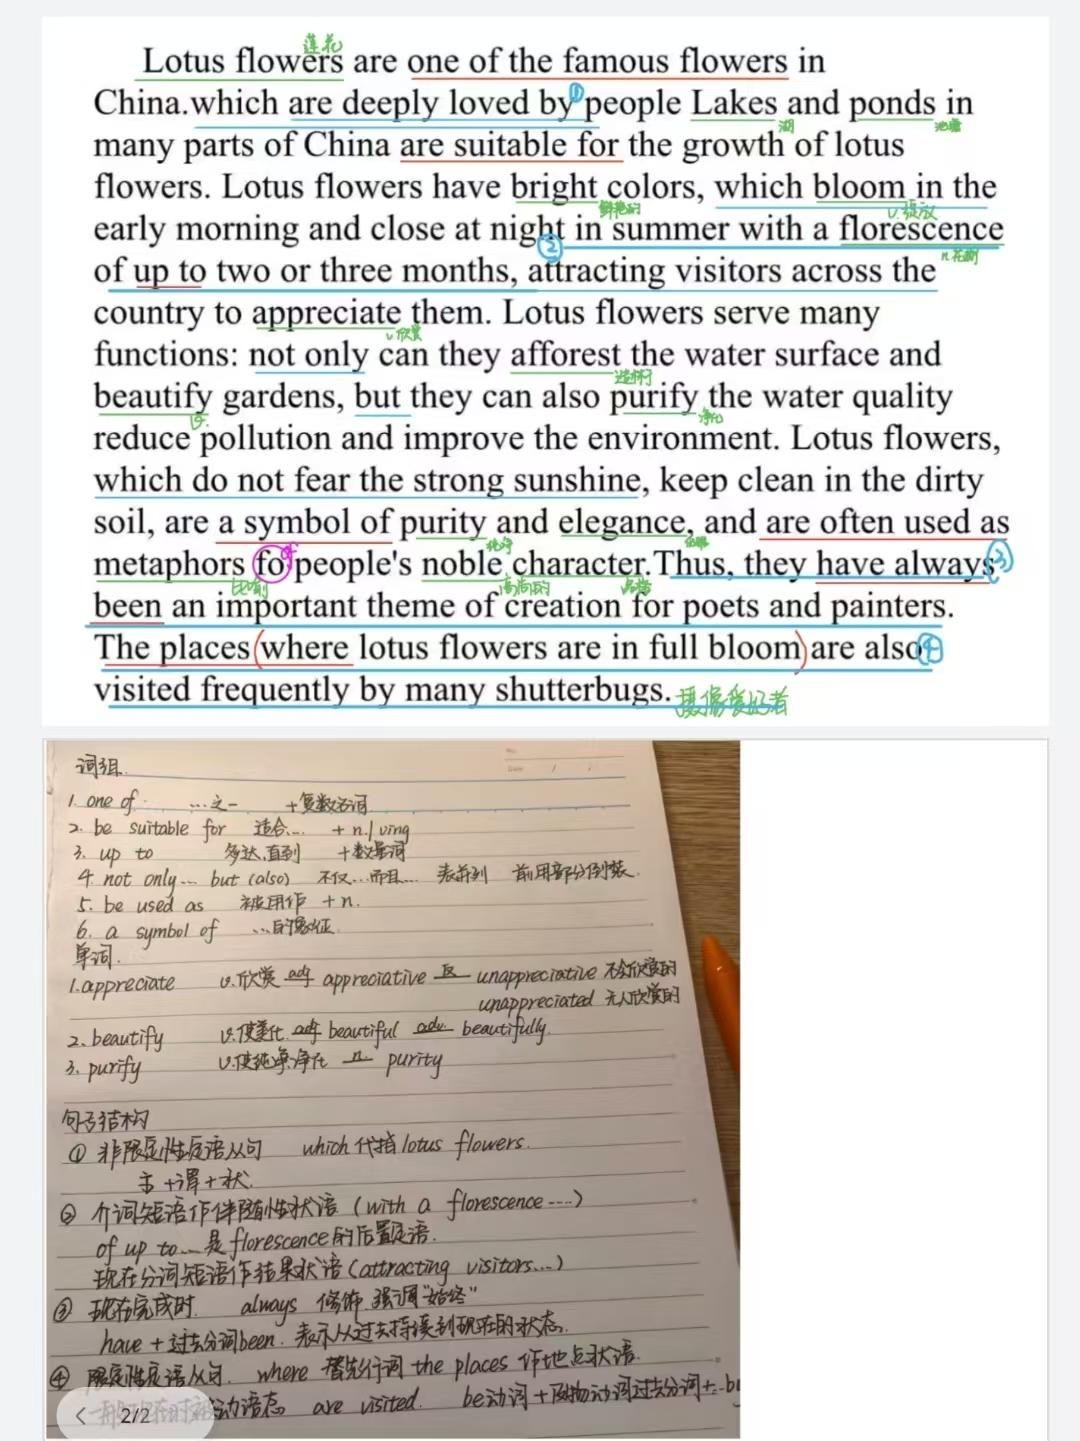 莲花
Lotus flowers are one of the famous flowers in
China.which are deeply loved by ① people Lakes and ponds in
湖 池塘
many parts of China are suitable for the growth of lotus
flowers. Lotus flowers have bright colors, which bloom in the
鲜艳的 v.绽放
early morning and close at night in summer with a florescence
② n.花期
of up to two or three months, attracting visitors across the
country to appreciate them. Lotus flowers serve many
v.欣赏
functions: not only can they afforest the water surface and
造林于
beautify gardens, but they can also purify the water quality
v. 净化
reduce pollution and improve the environment. Lotus flowers,
which do not fear the strong sunshine, keep clean in the dirty
soil, are a symbol of purity and elegance, and are often used as
纯净
metaphors fo of people's noble character.Thus, they have always ③
比喻 高尚的 品格
been an important theme of creation for poets and painters.
The places (where lotus flowers are in full bloom) are also ④
visited frequently by many shutterbugs. 摄像爱好者
词组.
1. one of ...之一 +复数名词
2. be suitable for 适合... + n./ving
3. up to 多达,直到 +数量词
4. not only... but (also) 不仅...而且... 表并列 前用部分倒装.
5. be used as 被用作 + n.
6. a symbol of ...的象征.
单词.
1.appreciate v.欣赏 adj appreciative 反 unappreciative 不会欣赏的
unappreciated 无人欣赏的
2. beautify v.使美化 adj beautiful adv. beautifully.
3. purify v.使纯净,净化 n purity
句子结构
① 非限定性定语从句 which 代指 lotus flowers.
主+谓+状.
② 介词短语作伴随性状语 (with a florescence ....)
of up to... 是 florescence 的后置定语.
现在分词短语作结果状语 (attracting visitors...)
③ 现在完成时. always 修饰.强调"始终"
have + 过去分词 been. 表示从过去持续到现在的状态.
④ 限定性定语从句. where 替先行词 the places 作地点状语.
一般现在时被动语态 are visited. be动词+及物动词过去分词+by
2/2